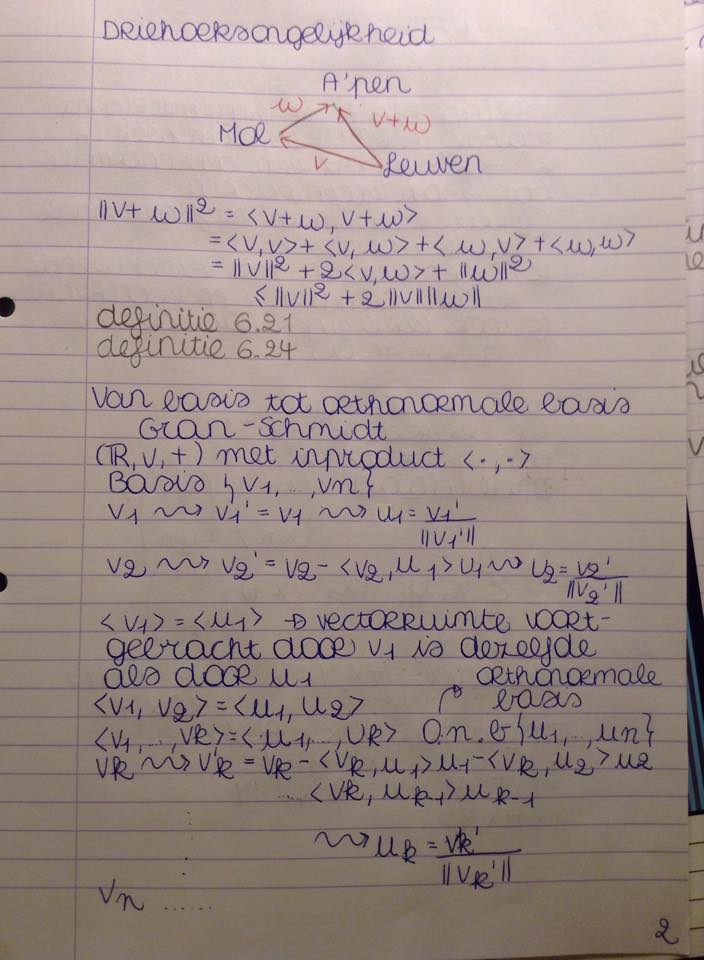 Driehoeksongelijkheid
A'pen
w
v+w
Mol
v
Leuven
||v+w||² = <v+w, v+w>
= <v,v> + <v,w> + <w,v> + <w,w>
= ||v||² + 2<v,w> + ||w||²
≤ ||v||² + 2||v||||w||
definitie 6.21
definitie 6.24
Van basis tot orthonormale basis
Gran-Schmidt
(ℝ,V,+) met inproduct <·,·>
Basis {v1,...,vn}
v1 ⇝ v1' = v1 ⇝ u1 = v1'/||v1'||
v2 ⇝ v2' = v2 - <v2,u1>u1 ⇝ u2 = v2'/||v2'||
<v1> = <u1> → vectorruimte voort-
gebracht door v1 is dezelfde
als door u1
orthonormale
<v1, v2> = <u1, u2>
basis
<v1,...,vk> = <u1,...,vk> O.n.b {u1,...,un}
vk ⇝ v'k = vk - <vk,u1>u1 - <vk,u2>u2
... <vk,uk-1>uk-1
⇝ uk = vk'/||vk'||
vn ......
2